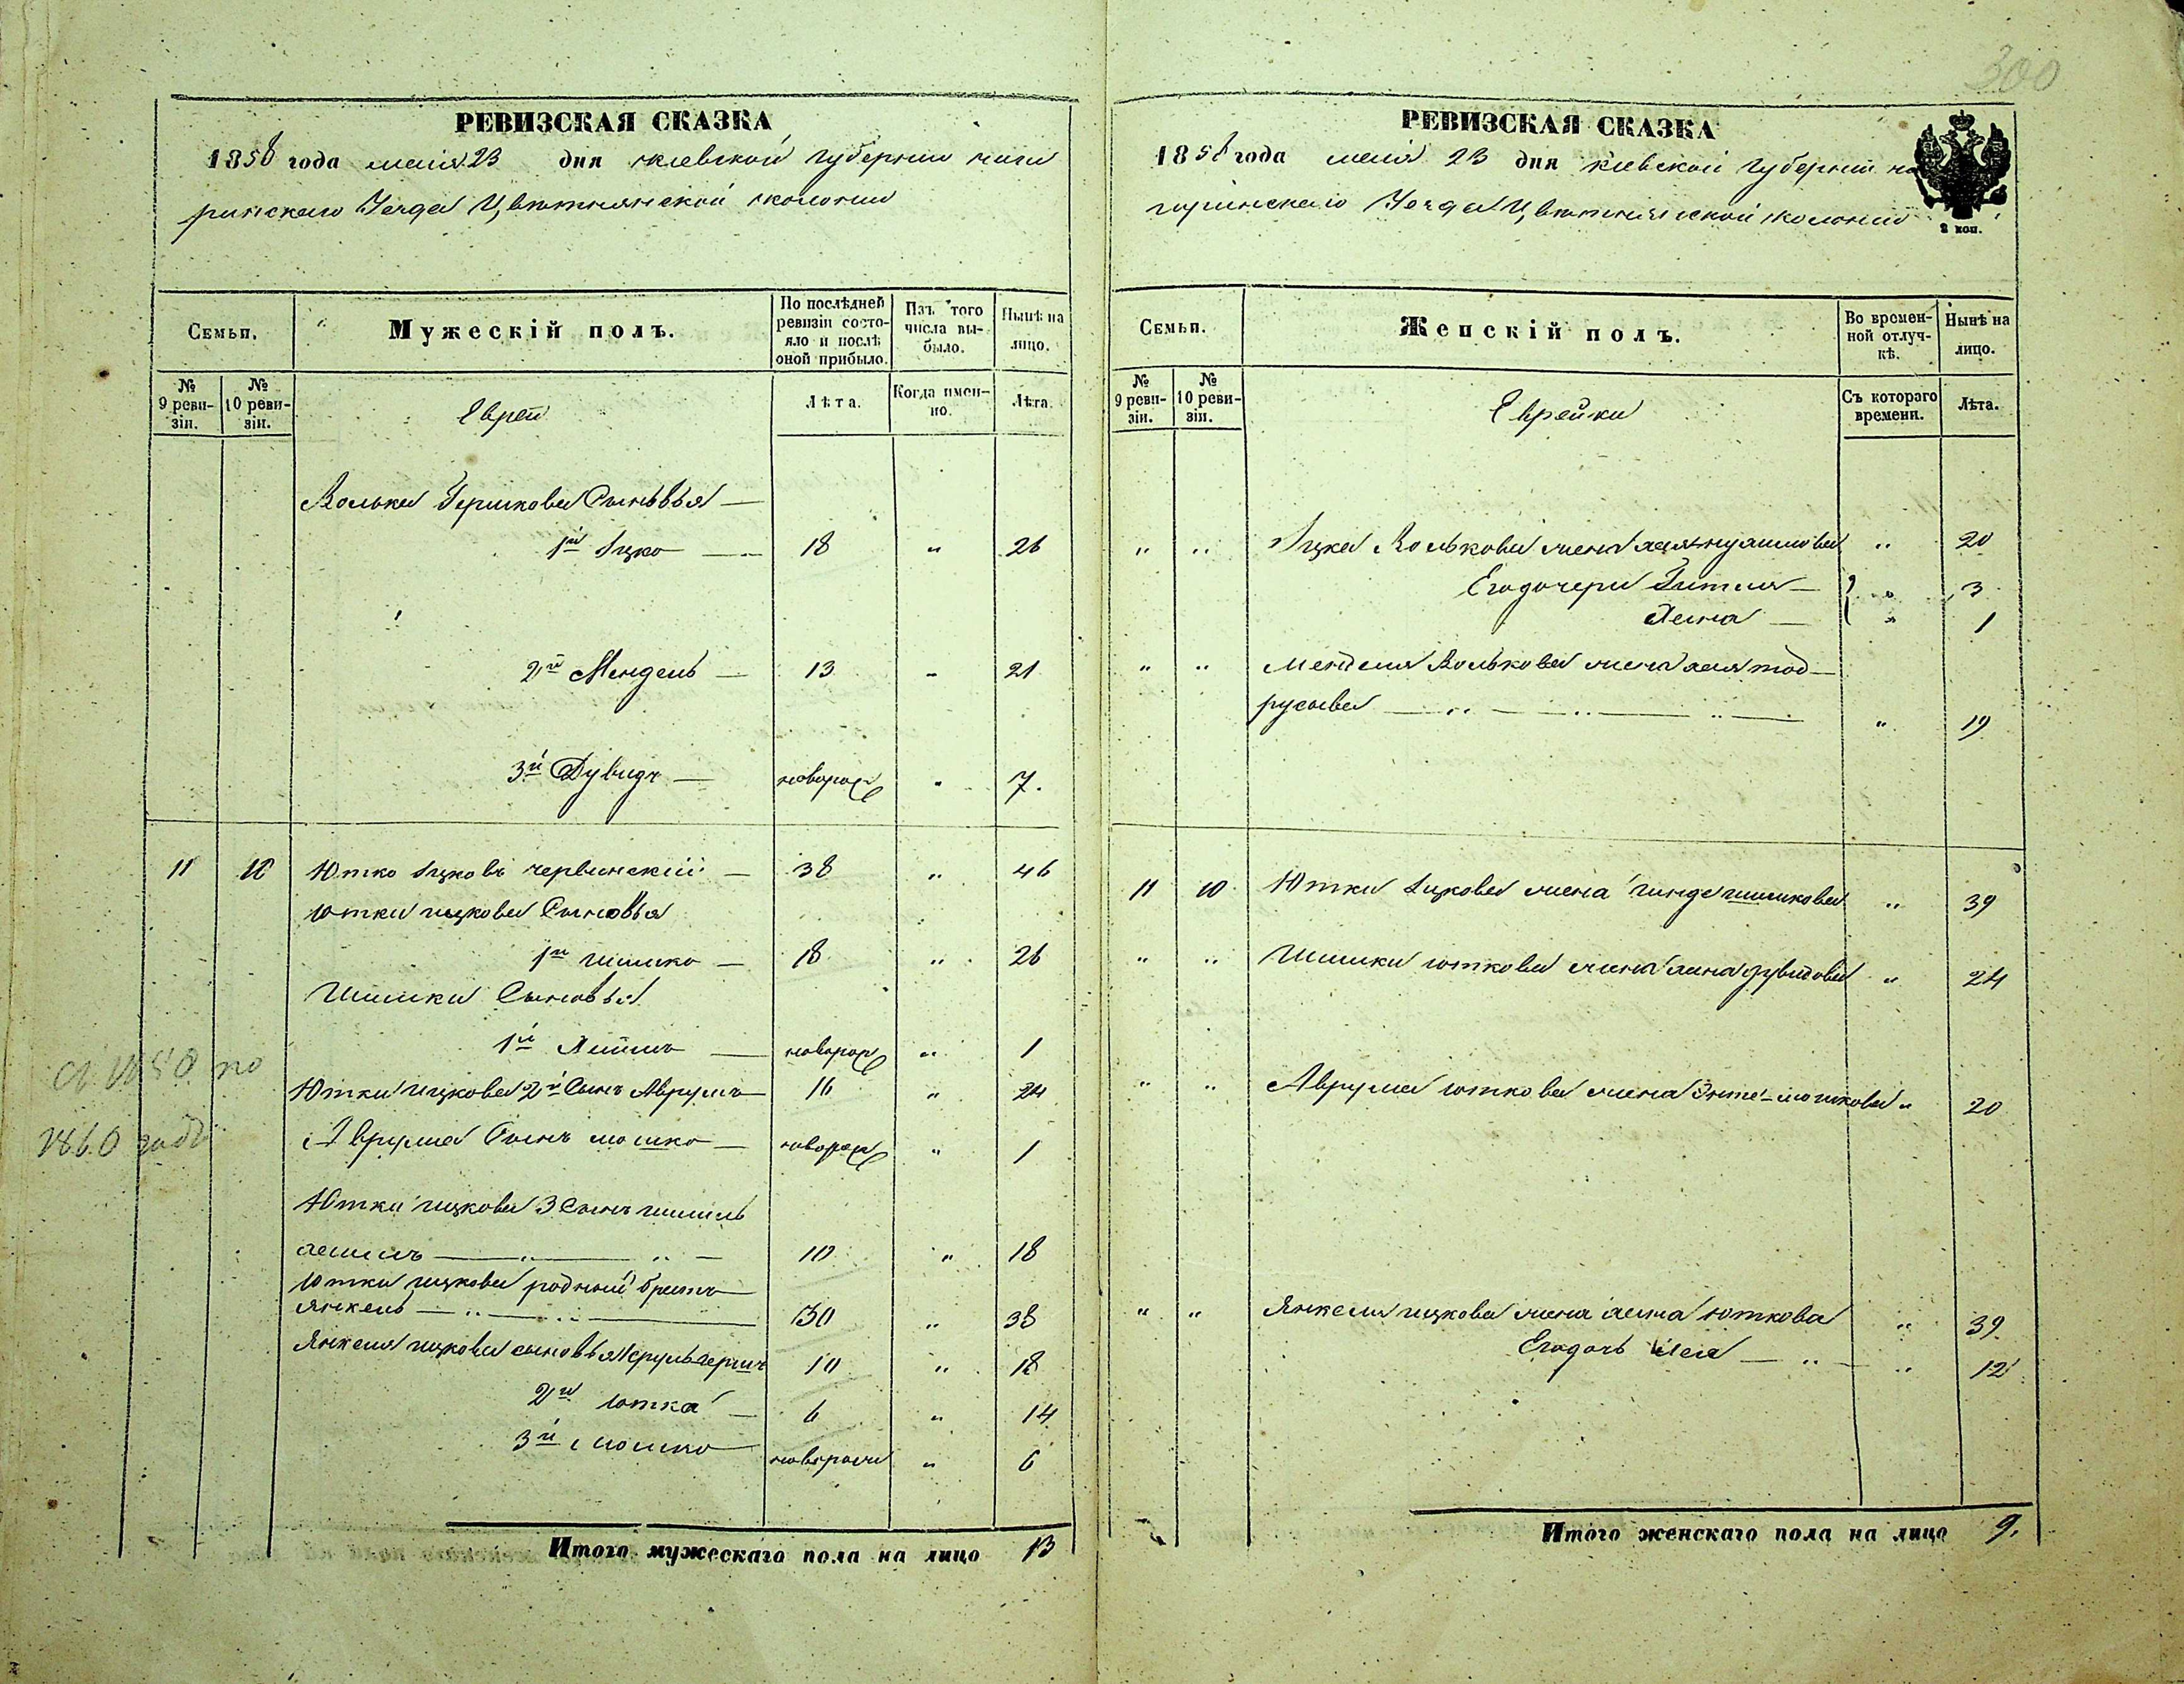 300
РЕВИЗСКАЯ СКАЗКА
1858 года маія 23 дня киевской губернии чиги
ринскаго Уезда Цвѣтнянской колонии
Семьи.
Мужескій полъ.
По послѣдней ревизіи состояло и послѣ оной прибыло.
Изъ того числа выбыло.
Нынѣ на лицо.
№ 9 ревизіи.
№ 10 ревизіи.
Евреи
Лѣта.
Когда именно.
Лѣта.
Волька Гершкова Сыновья —
1й Ицко — 18 " 26
2й Мендель — 13 " 21
3й Дувидъ — новорож " 7.
11 10 Ютко Ицковъ червинский — 38 " 46
Ютки ицкова Сыновья
1й шимко — 18 " 26
Шимки Сыновья
1й — новорож " 1
Ютки ицкова 2й Сынъ Аврумъ — 16 " 24
Аврума Сынъ мошко — новорож " 1
Ютки ицкова 3 Сынъ
10 " 18
Ютки ицкова родный братъ
янкель — 30 " 38
Янкеля ицкова сыновья 10 " 18
2й ютка — 6 " 14
3й мошко новорож " 6
Итого мужескаго пола на лицо 13
1860 годъ
РЕВИЗСКАЯ СКАЗКА
1858 года маія 23 дня киевской губернии чи
гиринскаго Уезда Цвѣтнянской колонии
2 коп.
Семьи.
Женскій полъ.
Во временной отлучкѣ.
Нынѣ на лицо.
№ 9 ревизіи.
№ 10 ревизіи.
Еврейки
Съ котораго времени.
Лѣта.
" " Ицка Волькова жена " 20
Его дочери Гитля — " 3
" 1
" " Менделя Волькова жена
" 19
11 10 Ютки Ицкова жена гинде шимкова " 39
" " Шимки юткова жена дувидова " 24
" " Аврума юткова жена Энте мошкова " 20
" " Янкеля ицкова жена юткова " 39
Его дочь Лея — " 12
Итого женскаго пола на лицо 9.